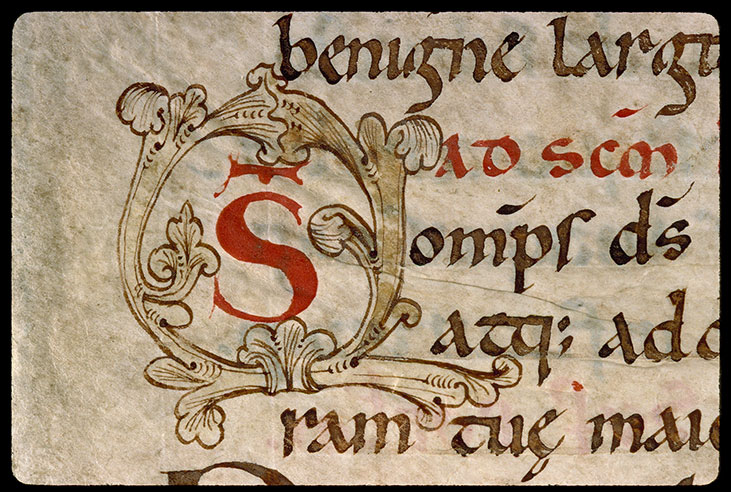 benigne largi
ad scm̄
QS omp̄s ds̄
atq; ad
ram tuę maie